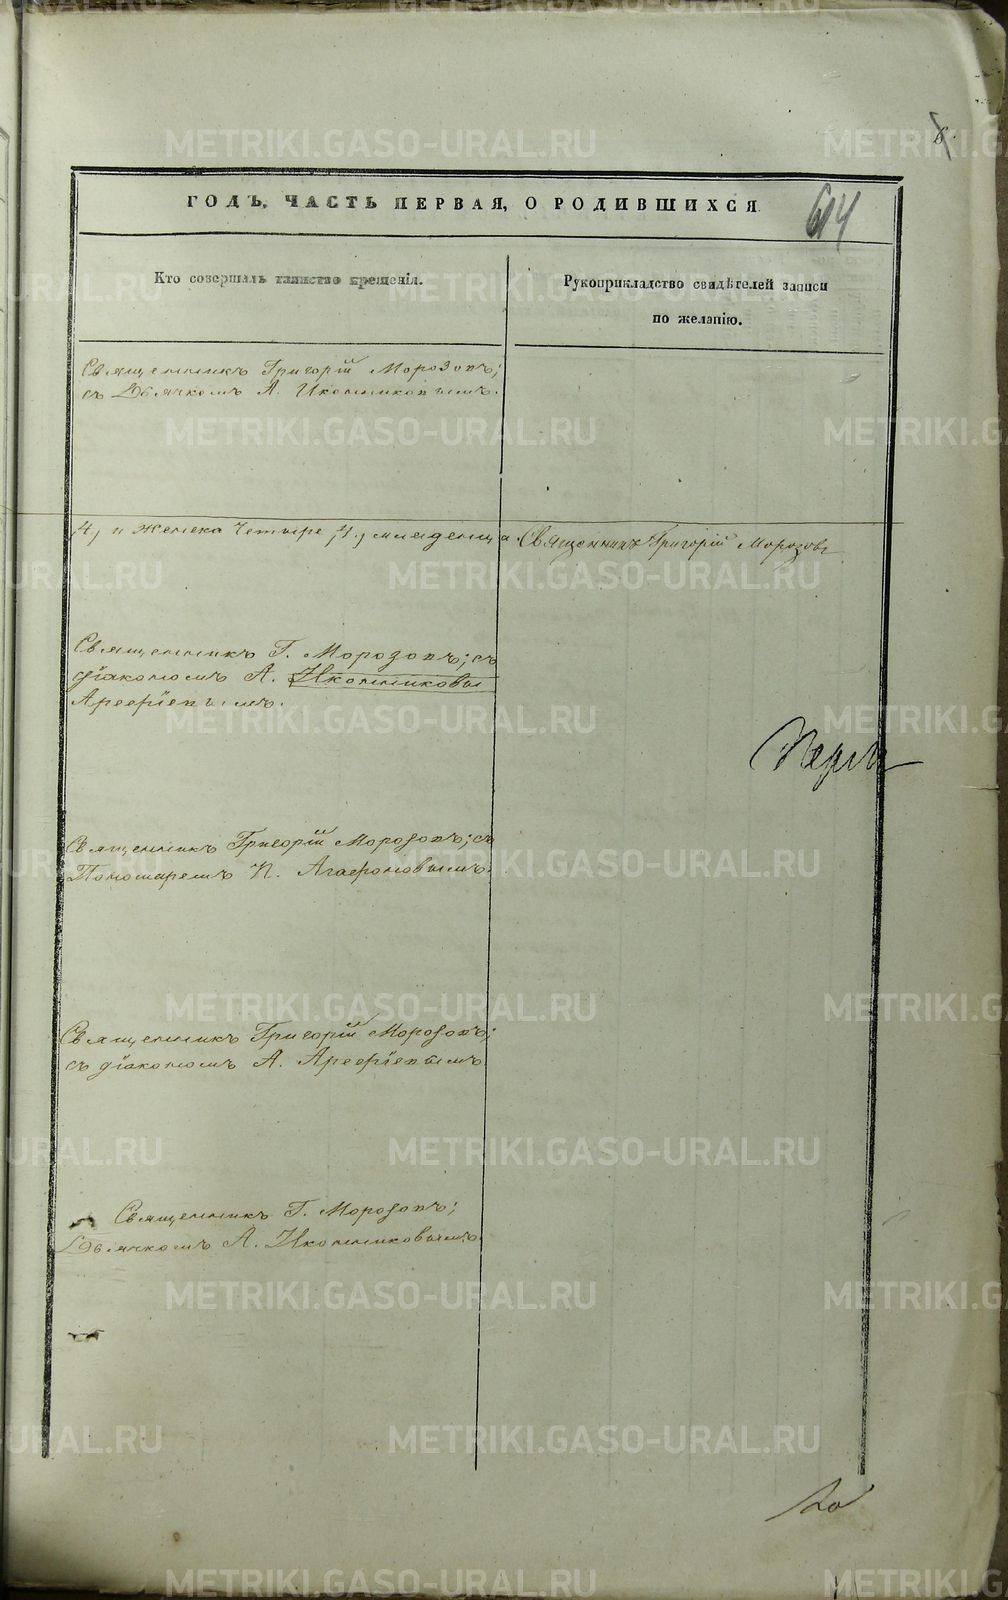 6.
ГОДЪ, ЧАСТЬ ПЕРВАЯ, О РОДИВШИХСЯ
614
Кто совершалъ таинство крещенія.
Рукоприкладство свидѣтелей записи
по желанію.
Священникъ Григорій Морозовъ;
съ Дьячкомъ А. Иконниковымъ.
/4/ и женска четыре /4./ младенца. Священникъ Григорій Морозовъ
Священникъ Г. Морозовъ; съ
діакономъ А. Иконниковы
Арефіевымъ.
Священникъ Григорій Морозовъ; съ
Пономаремъ П. Агафоновымъ.
Священникъ Григорій Морозовъ;
съ діакономъ А. Арефіевымъ.
Священникъ Г. Морозовъ;
Дьячкомъ А. Иконниковымъ.
METRIKI.GASO-URAL.RU